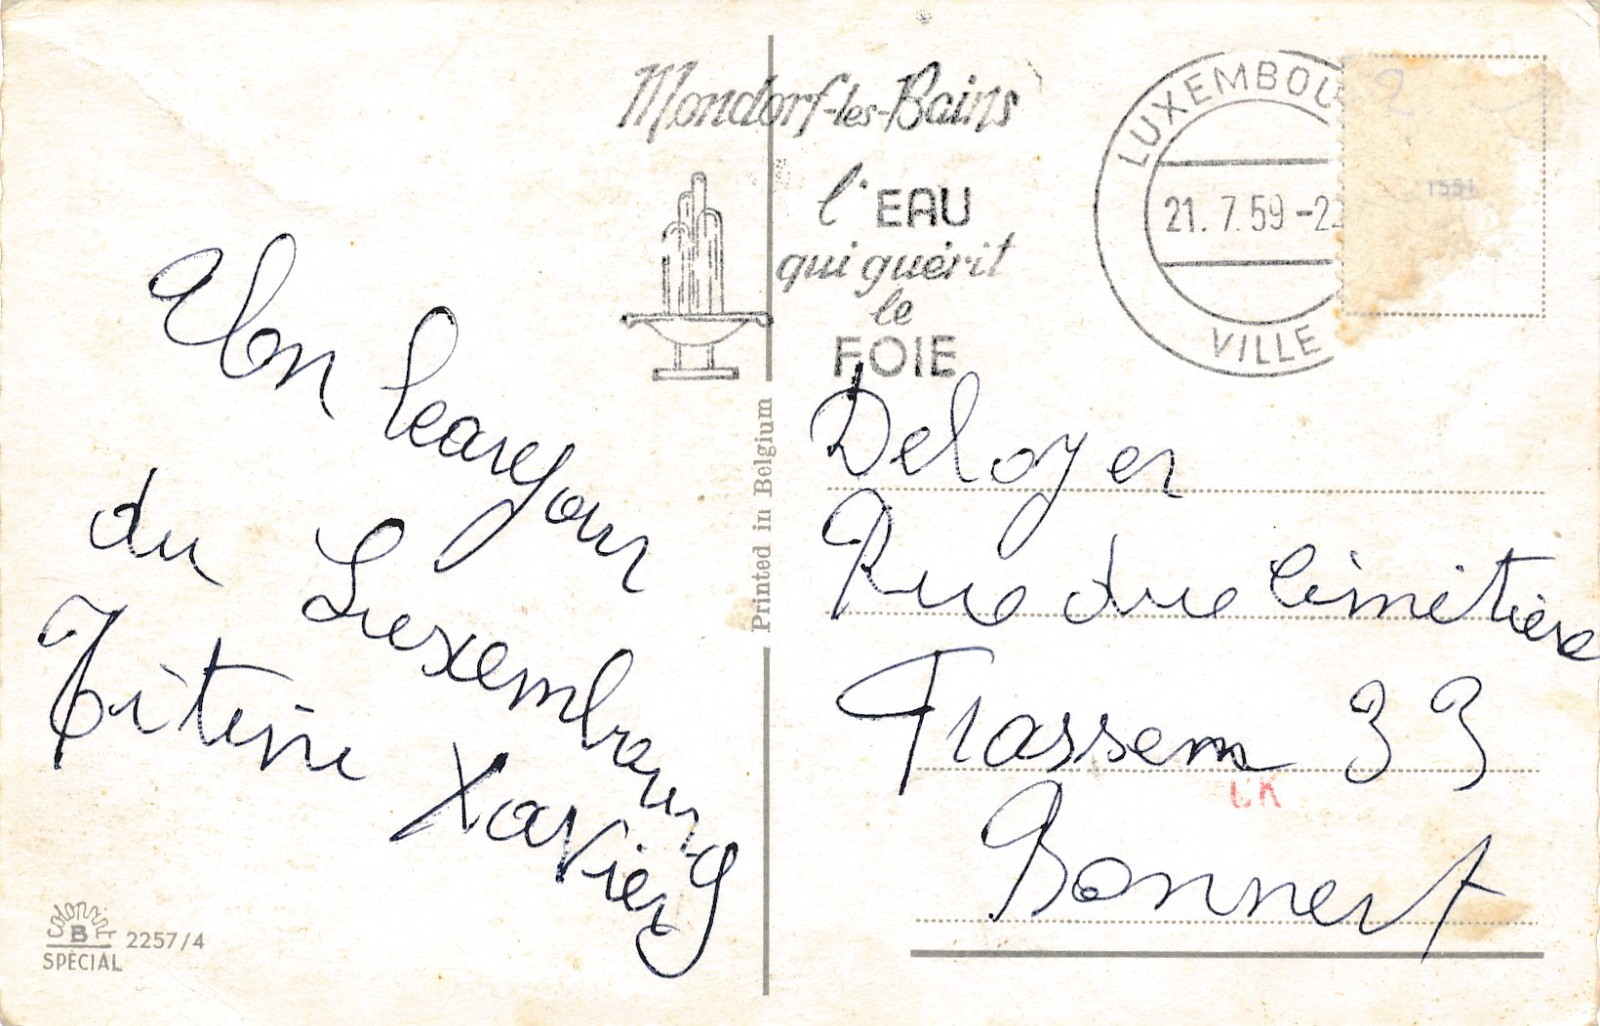 Mondorf-les-Bains
l'EAU
qui guérit
le
FOIE
LUXEMBOU
21.7.59-2
VILLE
1551
du Luxembourg
Xavier
Deloyer
Rue du Cimetière
Frassem 33
Bonnert
Printed in Belgium
CK
Colorprint
B
SPÉCIAL
2257/4